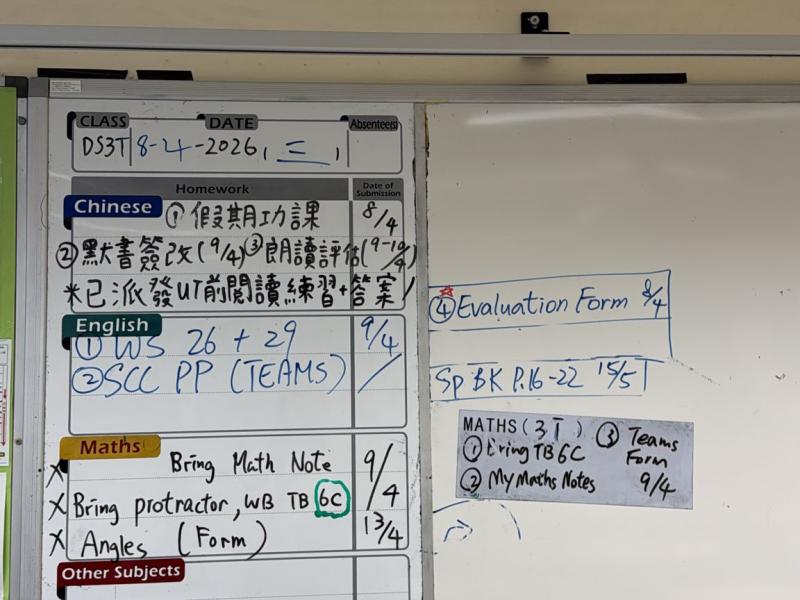 CLASS DATE Absentee(s)
DS3T 8-4-2026, 三,
Homework Date of Submission
Chinese ① 假期功課 8/4
② 默書簽改(9/4) ③朗讀評估(9-10/4)
*已派發UT前閱讀練習+答案 /
English
① WS 26 + 29 9/4
② SCC PP (TEAMS) /
Maths
X Bring Math Note 9/4
X Bring protractor, WB TB 6C
X Angles (Form) 13/4
Other Subjects
④ Evaluation Form 8/4
Sp BK P.16-22 15/5
MATHS (3T) ③ Teams
① Bring TB 6C Form
② My Maths Notes 9/4